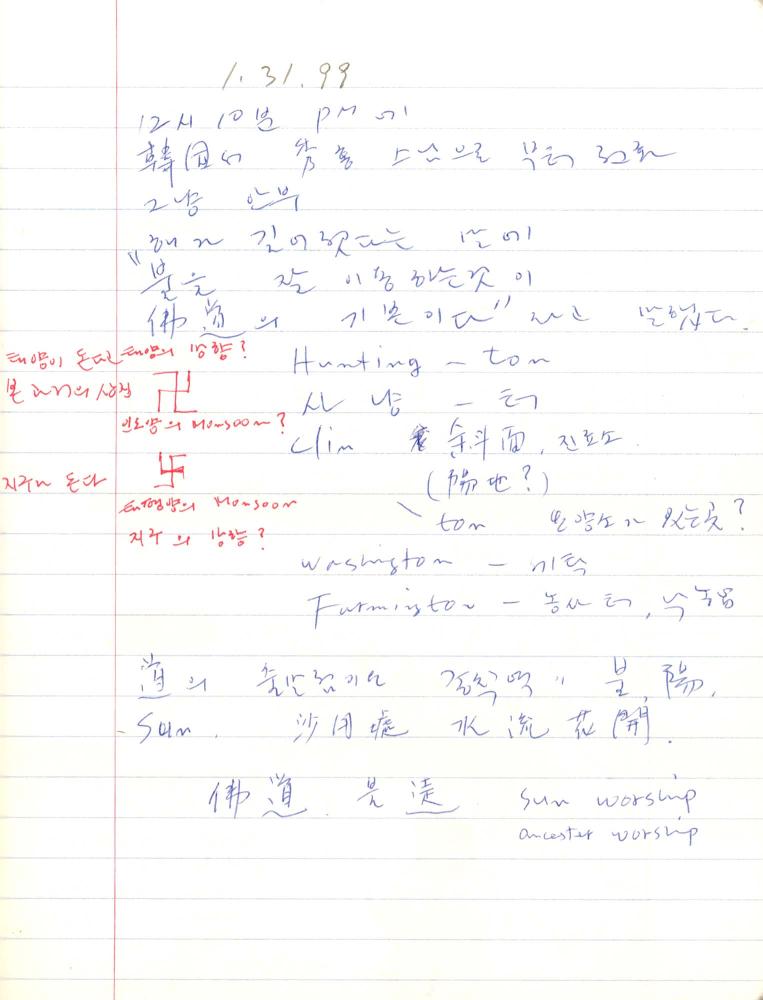 1. 31. 99
12시 10분 PM 에
韓国서 秀홍 스님으로 부터 전화
그냥 안부
"해가 길어졋다는 말에
불을 잘 이용하는것 이
佛道의 기본이다" 라고 말했다.
태양이 돈다 태양의 방향?
Hunting - ton
卍
사냥 - 터
인도양의 Monsoon?
Clin 余斗面, 진료소.
(陽地?)
지구가 돈다
卐
태평양의 Monsoon
ton 요양소가 있는곳?
지구의 방향?
Washington -
Farmington - 농사 터, 낙농
道의 출발점이요 종착역" 불, 陽,
- Sun. 水流花開.
佛道. 붓 sun worship
ancester worship